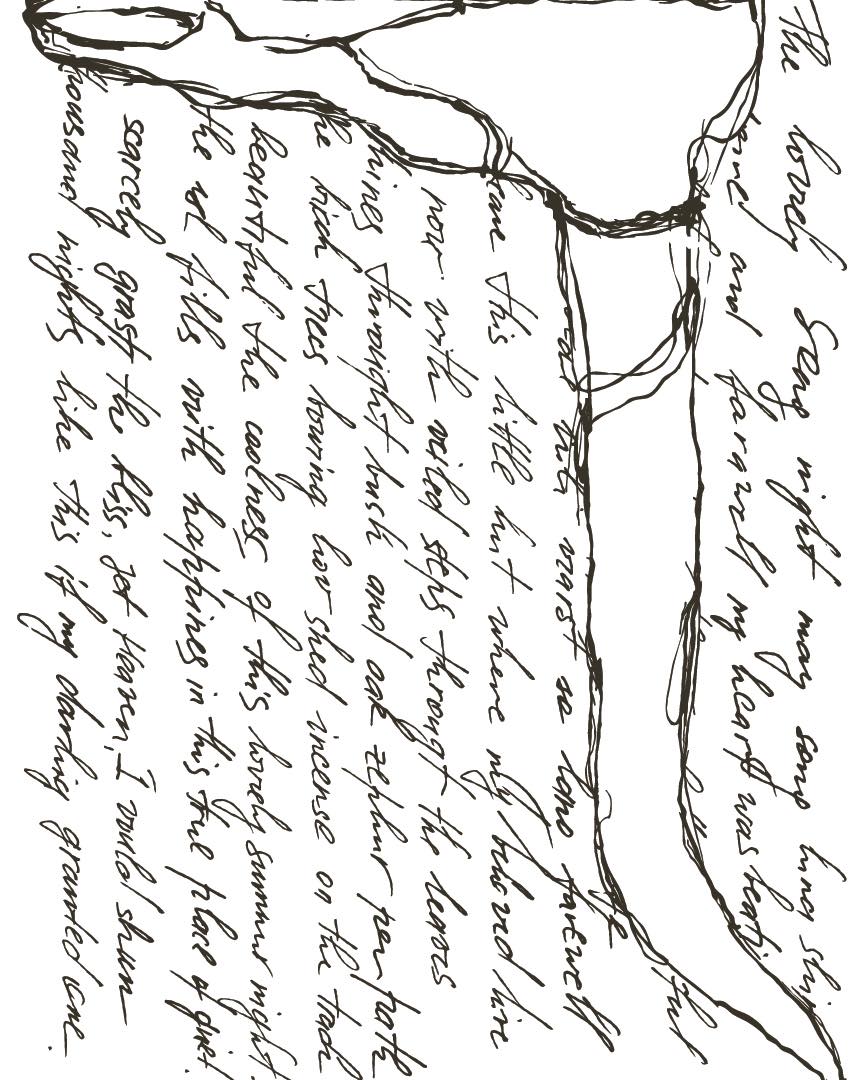 The lovely song night may song
and farewell my heart was beating
the
ful
must so long farewell
this little hut where my beloved live
now with veiled steps througt the leaves
shines throught bush and oak zephur per path
the birch trees bowing low shed incense on the track
beautiful the coolness of this lovely summer night
the sol fills with happines in this true place of quiet!
scarcely grast the bliss, yet Heaven, I would shun
thousand nights like this if my darling granted one.